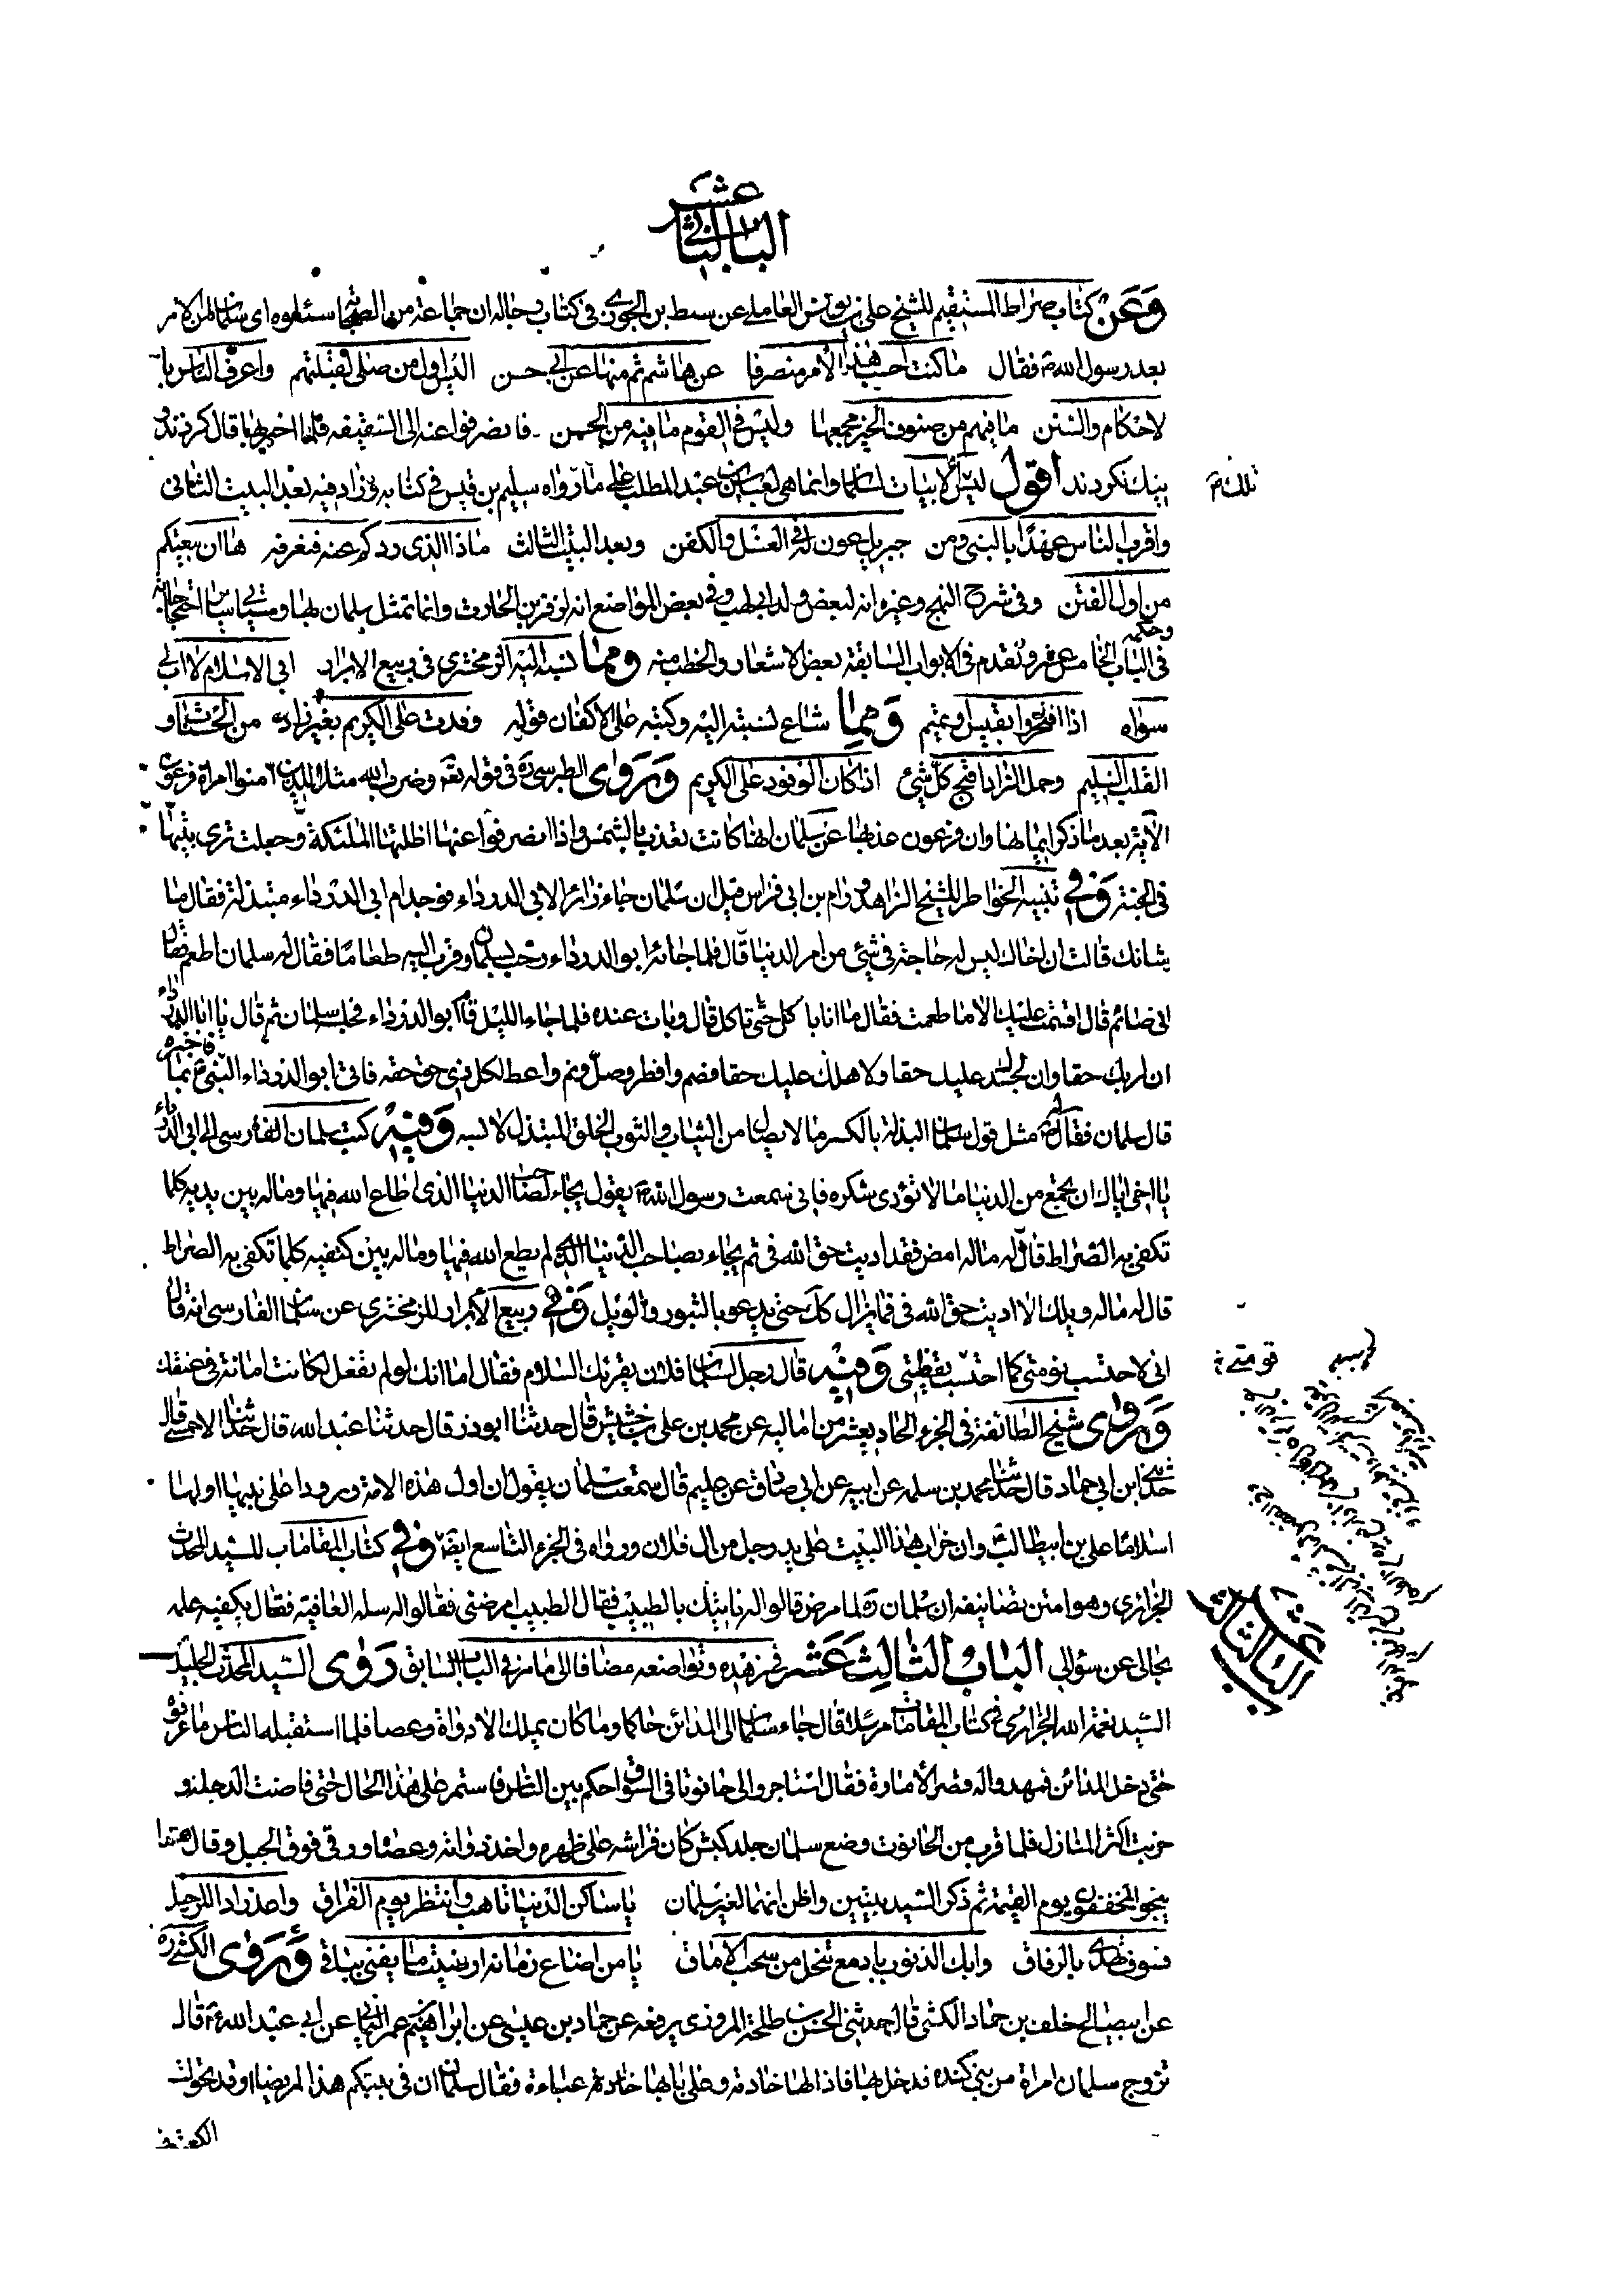 الباب الثانی عشر
وَعَن کتاب صراط المستقیم للشیخ علی بن یونس العاملی عن سبط بن الجوزی فی کتاب رجاله ان جماعة من الصحابة سئلوه ای سلمان لمن الامر
بعد رسول الله ص فقال ما کنت احسب هذا الامر منصرفا عن هاشم ثم منها عن ابی حسن الیس اول من صلی لقبلتهم واعرف الناس با
لاحکام والسنن ما فیهم من صنوف الخیر یجمعها ولیس فی القوم ما فیه من الحسن فانصرفوا عنه الی السقیفه فلما اخبر بها قال کردند و
نیک نکردند اقول لیس الابیات لسلمان وانما هی لعباس بن عبد المطلب علی ما رواه سلیم بن قیس فی کتابه وزاد فیه بعد البیت الثانی
واقرب الناس عهدا بالنبی ومن جبریل عون له فی الغسل والکفن وبعد البیت الثالث ماذا الذی ردکم عنه فنعرفه ها ان بیعتکم
من اول الفتن وفی شرح النهج وغیره انه لبعض ولد ابی لهب وفی بعض المواضع انه لزفر بن الحارث وانما تمثل سلمان بها ومشی بیاننا احتجاجاته وحکمه
فی الباب الخامس عشر وتقدم فی الابواب السابقة بعض الاشعار والخطب منه ومما نسبه الیه الزمخشری فی ربیع الابرار ابی الاسلام لا اب لی
سواه اذا افتخروا بقیس او تمیم ومما شاع نسبته الیه وکتبه علی الاکفان قوله وفدت علی الکریم بغیر زاد من الحسنات و
القلب السلیم وحمل الزاد اقبح کل شیئ اذا کان الوفود علی الکریم وَرَوی الطبرسی ره فی قوله تعه وضرب الله مثلا للذین امنوا امراة فرعون
الآیة بعد ما ذکر ایمانها وان فرعون عذبها عن سلمان انها کانت تعذب بالشمس واذا انصرفوا عنها اظلتها الملئکة وجعلت تری بیتها
فی الجنة وَفی تنبیه الخواطر للشیخ الزاهد ورام بن ابی فراس قیل ان سلمان جاء زائرا لابی الدرداء فوجد ام ابی الدرداء مبتذلة فقال ما
شانک قالت ان اخاک لیس له حاجة فی شیئ من امر الدنیا قال فلما جاء ابو الدرداء رحب بسلمان وقرب الیه طعاما فقال له سلمان اطعم فقال
انی صائم قال اقسمت علیک الا ما طعمت فقال ما انا باکل حتی تاکل قال وبات عنده فلما جاء اللیل قام ابو الدرداء فحبسه سلمان ثم قال یا ابا الدرداء
ان لربک حقا وان لجسدک علیک حقا ولاهلک علیک حقا فصم وافطر وصل ونم واعط لکل ذی حق حقه فاتی ابو الدرداء النبی ص فاخبره بما
قال سلمان فقال له ص مثل قول سلمان البذلة بالکسر ما لا یصان من الثیاب والثوب الخلق المبتذل لابسه وَفیه کتب سلمان الفارسی الی ابی الدرداء
یا اخی ایاک ان تجمع من الدنیا ما لا تؤدی شکره فانی سمعت رسول الله ص یقول یجاء بصاحب الدنیا الذی اطاع الله فیها وماله بین یدیه کلما
تکفی به الصراط قال له ماله امض فقد ادیت حق الله فی ثم یجاء بصاحب الدنیا الذی لم یطع الله فیها وماله بین کتفیه کلما تکفی به الصراط
قال له ماله ویلک الا ادیت حق الله فی فما یزال کک حتی یدعو بالثبور والویل وَفی ربیع الابرار للزمخشری عن سلمان الفارسی انه قال
انی لاحتسب نومتی کما احتسب یقظتی وَفیه قال رجل لسلمان فلان یقرئک السلام فقال اما انک لو لم تفعل لکانت امانة فی عنقک
وَرَوی شیخ الطائفة فی الجزء الحادی عشر من امالیه عن محمد بن علی بن خشیش قال حدثنا ابو ذر قال حدثنا عبد الله قال حدثنا الاحمسی قال
حدثنا ابن ابی حماد قال حدثنا محمد بن سلمه عن ابیه عن ابی صادق عن علیم قال سمعت سلمان یقول ان اول هذه الامة ورودا علی نبیها اولها
اسلاما علی بن ابیطالب ع وان خراب هذا البیت علی ید رجل من ال فلان ورواه فی الجزء التاسع ایضه وَفی کتاب المقامات للسید المحدث
الجزائری وهو امتن تصانیفه ان سلمان ره لما مرض قالوا له ناتیک بالطبیب فقال الطبیب امرضنی فقالوا له سله العافیة فقال یکفیه علمه
بحالی عن سؤالی الباب الثالث عشر فی زهده وتواضعه مضافا الی ما مر فی الباب السابق رَوی السید المحدث الجلیل
السید نعمة الله الجزائری فی کتاب المقامات مرسلا قال جاء سلمان الی المدائن حاکما وما کان یملک الا دواة وعصا فلما استقبله الناس ما عرفوه
حتی دخل المدائن فمهدوا له قصر الامارة فقال استاجروا لی حانوتا فی السوق احکم بین الناس فاستمر علی هذا الحال حتی فاضت الدجلة و
خربت اکثر المنازل فلما قرب من الحانوت وضع سلمان جلد کبش کان فراشه علی ظهره واخذ دواته وعصاه ورقی فوق الجبل وقال هکذا
ینجو المخففون یوم القیمة ثم ذکر السید بیتین واظن انهما لغیر سلمان یا ساکن الدنیا تاهب وانتظر یوم الفراق واعد زادا للرحیل
فسوف تحدی بالرفاق وابک الذنوب بادمع تنحل من سحب الاماق یا من اضاع زمانه ارضیت ما یفنی بباق وَرَوی الکشی ره
عن ابیصالح خلف بن حماد الکشی قال حدثنی الحسن بن طلحة المروزی یرفعه عن حماد بن عیسی عن ابراهیم بن عمر الیمانی عن ابی عبد الله ع قال
تزوج سلمان امراة من بنی کنده فدخل بها فاذا لها خادمة وعلی بابها عباءة فقال سلمان ان فی بیتکم هذا لمریضا او قد تحولت
الکعبة فی
الباب الثالث عشر